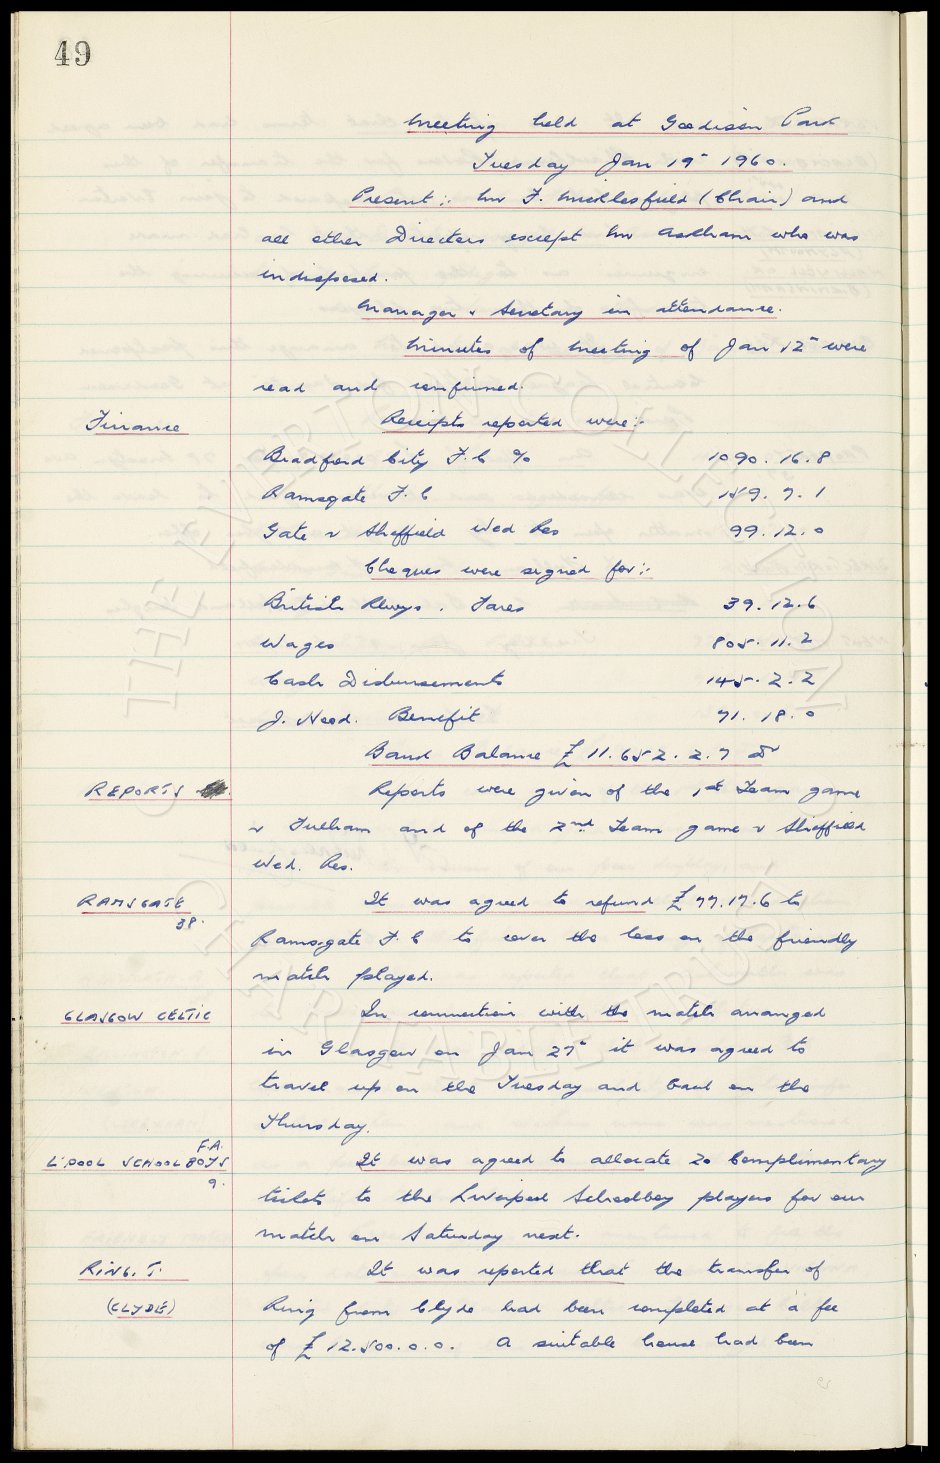 49
Meeting held at Goodison Park
Tuesday Jan 19th 1960.
Present:- Mr F. Micklesfield (Chair) and
all other Directors except Mr Askham who was
indisposed.
Manager & Secretary in attendance.
Minutes of Meeting of Jan 12th were
read and confirmed.
Finance
Receipts reported were:-
Bradford City F.C % 1090.16.8
Ramsgate F.C 159.7.1
Gate v Sheffield Wed Res 99.12.0
Cheques were signed for:-
British Rlwys. Fares 39.12.6
Wages 805.11.2
Cash Disbursements 145.2.2
J. Neod. Benefit 71.18.0
Bank Balance £11.652.2.7 Dr
REPORTS
Reports were given of the 1st Team game
v Fulham and of the 2nd Team game v Sheffield
Wed. Res.
RAMSGATE
38.
It was agreed to refund £77.17.6 to
Ramsgate F.C to cover the loss on the friendly
match played.
GLASGOW CELTIC
In connection with the match arranged
in Glasgow on Jan 27th it was agreed to
travel up on the Tuesday and back on the
Thursday.
L'POOL SCHOOLBOYS F.A.
9.
It was agreed to allocate 20 Complimentary
tickets to the Liverpool Schoolboy players for our
match on Saturday next.
RING. T.
(CLYDE)
It was reported that the transfer of
Ring from Clyde had been completed at a fee
of £12.500.0.0. A suitable house had been
THE EVERTON COLLECTION
CHARITABLE TRUST